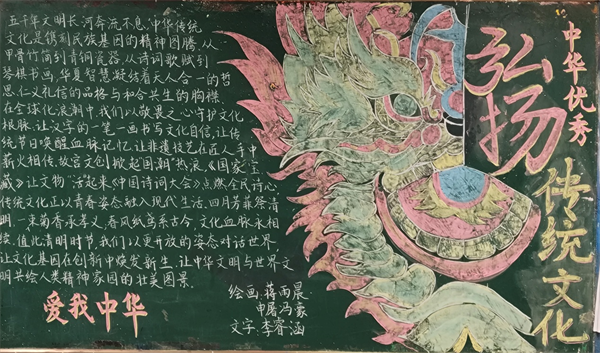 中华优秀
弘扬
传统文化
五千年文明长河奔流不息,中华传统
文化是镌刻民族基因的精神图腾。从
甲骨竹简到青铜瓷器,从诗词歌赋到
琴棋书画,华夏智慧凝结着天人合一的哲
思、仁义礼信的品格与和合共生的胸襟。
在全球化浪潮中,我们以敬畏之心守护文化
根脉,让汉字的一笔一画书写文化自信,让传
统节日唤醒血脉记忆,让非遗技艺在匠人手中
薪火相传。故宫文创掀起国潮"热浪,《国家宝
藏》让文物"活"起来,《中国诗词大会》点燃全民诗心,
传统文化正以青春姿态融入现代生活。四月芳菲祭清
明,一束菊香承孝义,春风纸鸢系古今,文化血脉永相
续。值此清明时节,我们以更开放的姿态对话世界,
让文化基因在创新中焕发新生,让中华文明与世界文
明共绘人类精神家园的壮美图景。
爱我中华
绘画:蒋雨晨
申屠冯豪
文字:李睿涵